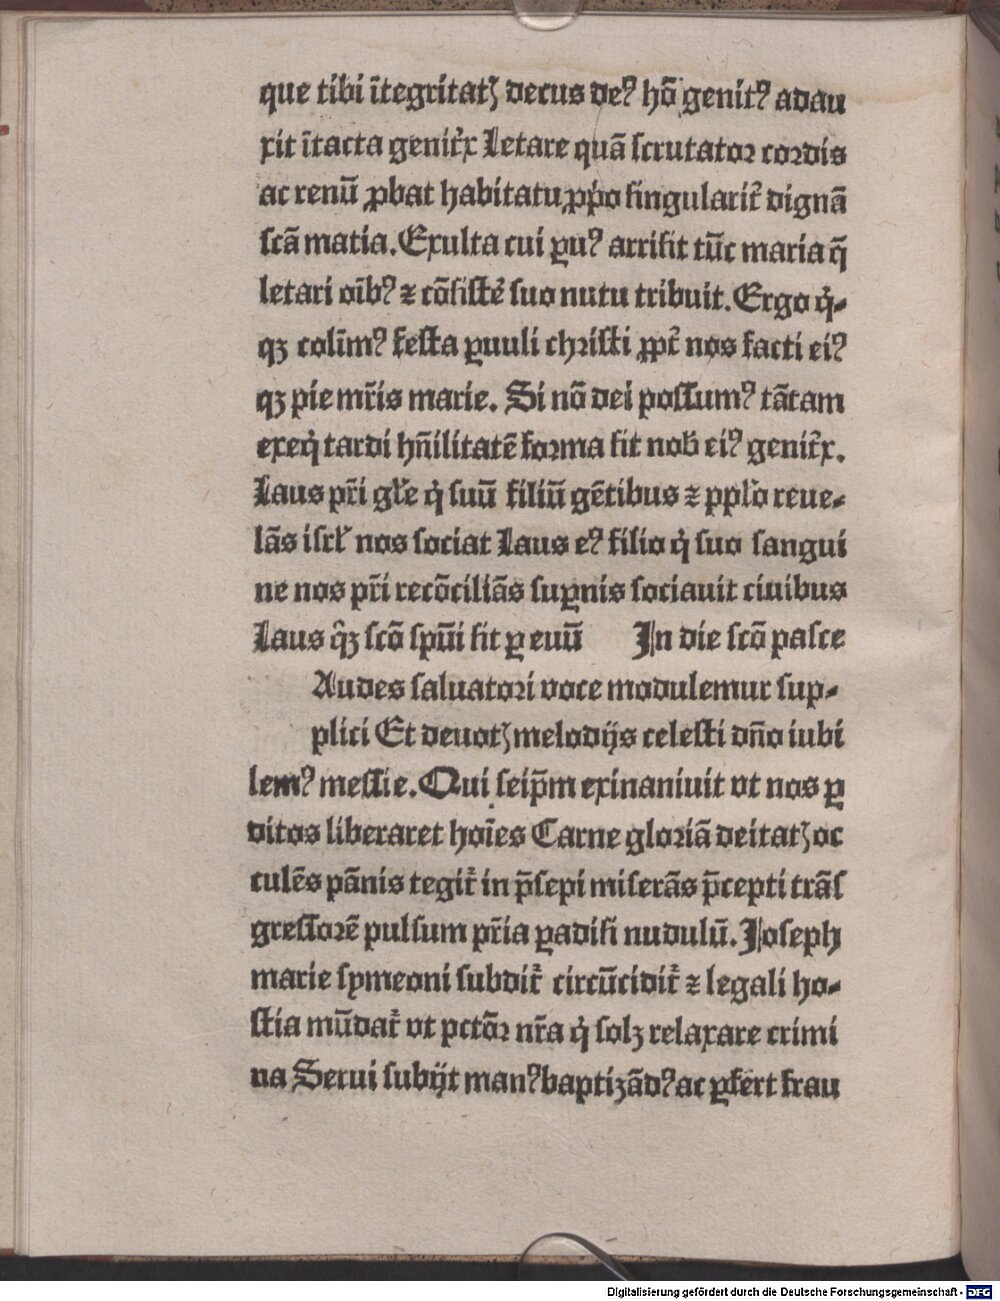 que tibi ītegritatꝫ decus deꝰ hō genitꝰ adau
xit ītacta genitᷣx Letare quā scrutator cordis
ac renū ꝓbat habitatu ꝓpͥo singularitᷣ dignā
scā matia. Exulta cui ꝑuꝰ arrisit tūc maria q̄
letari oībꝰ ⁊ cōsistēˀ suo nutu tribuit. Ergo qͥ-
qꝫ colīmꝰ festa ꝑuuli christi ꝓptᷣ nos facti eiꝰ
qꝫ pie mr̄is marie. Si nō dei possumꝰ tātam
exeqͥ tardi hūilitatē forma sit nob̄ eiꝰ genitᷣx.
Laus pr̄i gl̄e qͥ suū filiū gētibus ⁊ ppl̓o reue-
lās isrl̓ nos sociat Laus eꝰ filio qͥ suo sangui
ne nos pr̄i recōciliās suꝑnis sociauit ciuibus
Laus qͦꝫ scō spūi sit ꝑ euū In die scō pasce
Audes saluatori voce modulemur sup-
plici Et deuotꝫ melodijs celesti dn̄o iubi
lemꝰ messie. Qui seip̄m exinaniuit vt nos ꝑ
ditos liberaret hoīes Carne gloriā deitatꝫ oc
culēs pānis tegitᷣ in p̄sepi miserās p̄cepti trās
gressorē pulsum pr̄ia ꝑadisi nudulū. Joseph
marie symeoni subditᷣ circūciditᷣ ⁊ legali ho-
stia mūdatᷣ vt pctōꝝ nr̄a qͥ solꝫ relaxare crimi
na Serui subijt manꝰ baptizādꝰ ac ꝑfert frau
Digitalisierung gefördert durch die Deutsche Forschungsgemeinschaft - DFG